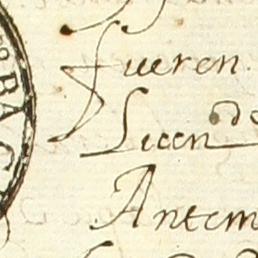 fueren
Licen do
Antem